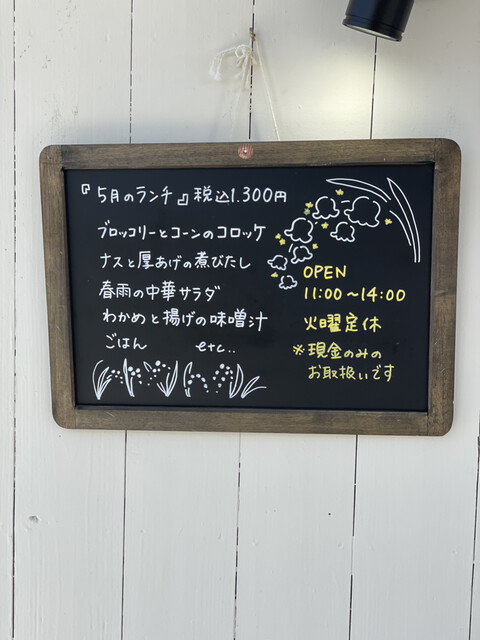 『5月のランチ』税込1.300円
ブロッコリーとコーンのコロッケ
ナスと厚あげの煮びたし
春雨の中華サラダ
わかめと揚げの味噌汁
ごはん etc..
OPEN
11:00〜14:00
火曜定休
※現金のみの
お取扱いです